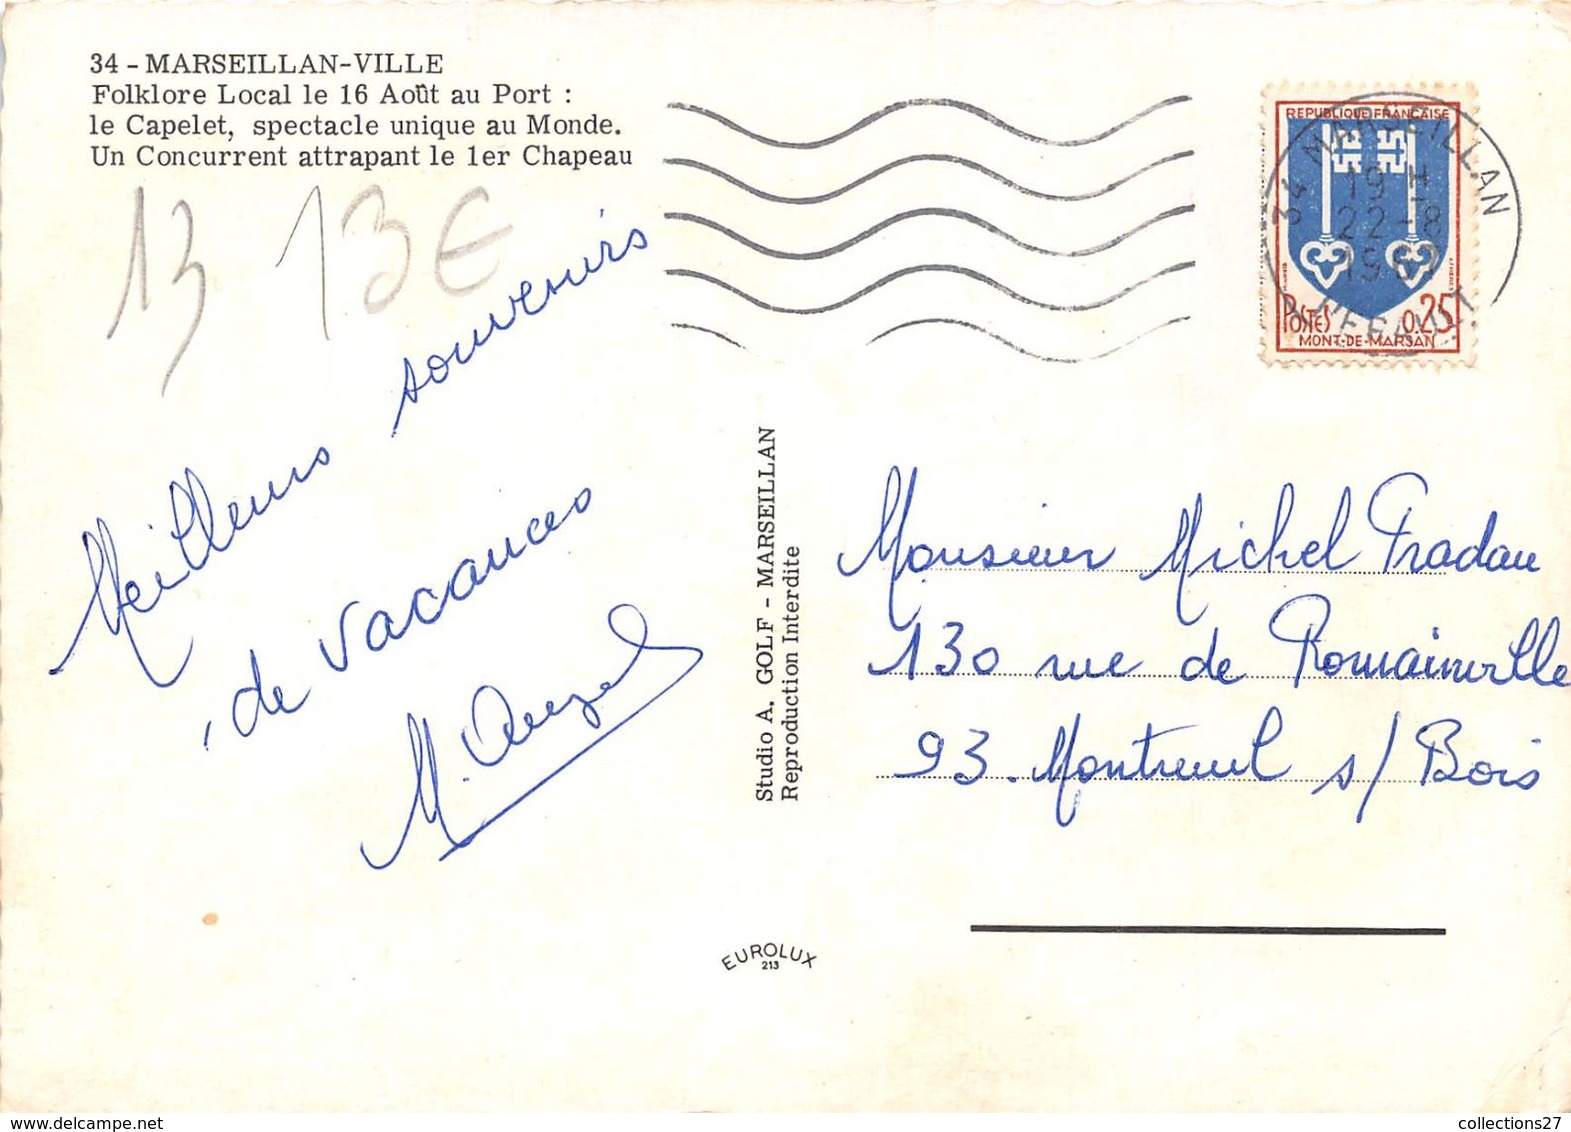 34 - MARSEILLAN-VILLE
Folklore Local le 16 Août au Port :
le Capelet, spectacle unique au Monde.
Un Concurrent attrapant le 1er Chapeau
13 13€
Meilleurs souvenirs
de vacances
M.
Studio A. GOLF - MARSEILLAN
Reproduction Interdite
EUROLUX
213
REPUBLIQUE FRANÇAISE
POSTES 0,25
MONT-DE-MARSAN
34 MARSEILLAN
19 H
22-8
HERAULT
Monsieur Michel Pradau
130 rue de Romainville
93. Montreuil s/ Bois
collections27